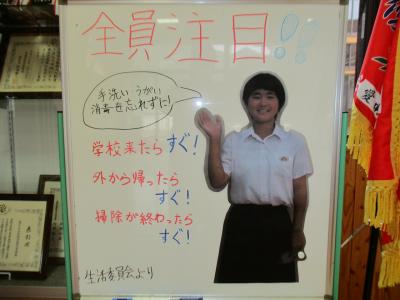 全員注目!!
手洗い うがい
消毒を忘れずに!
学校来たら すぐ!
外から帰ったら
すぐ!
掃除が終わったら
すぐ!
生活委員会より